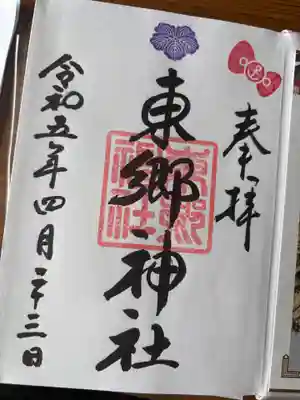 奉拝
東郷神社
東郷神社
令和五年四月二十三日